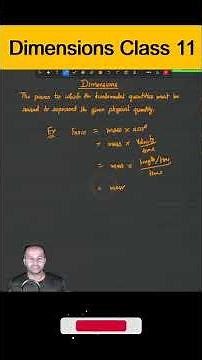 Dimensions Class 11
Dimensions
The powers to which the fundamental quantities must be
raised to represent the given physical quantity.
Ex Force = mass × accⁿ
= mass × Velocity/time
= mass × length/time/time
= mass